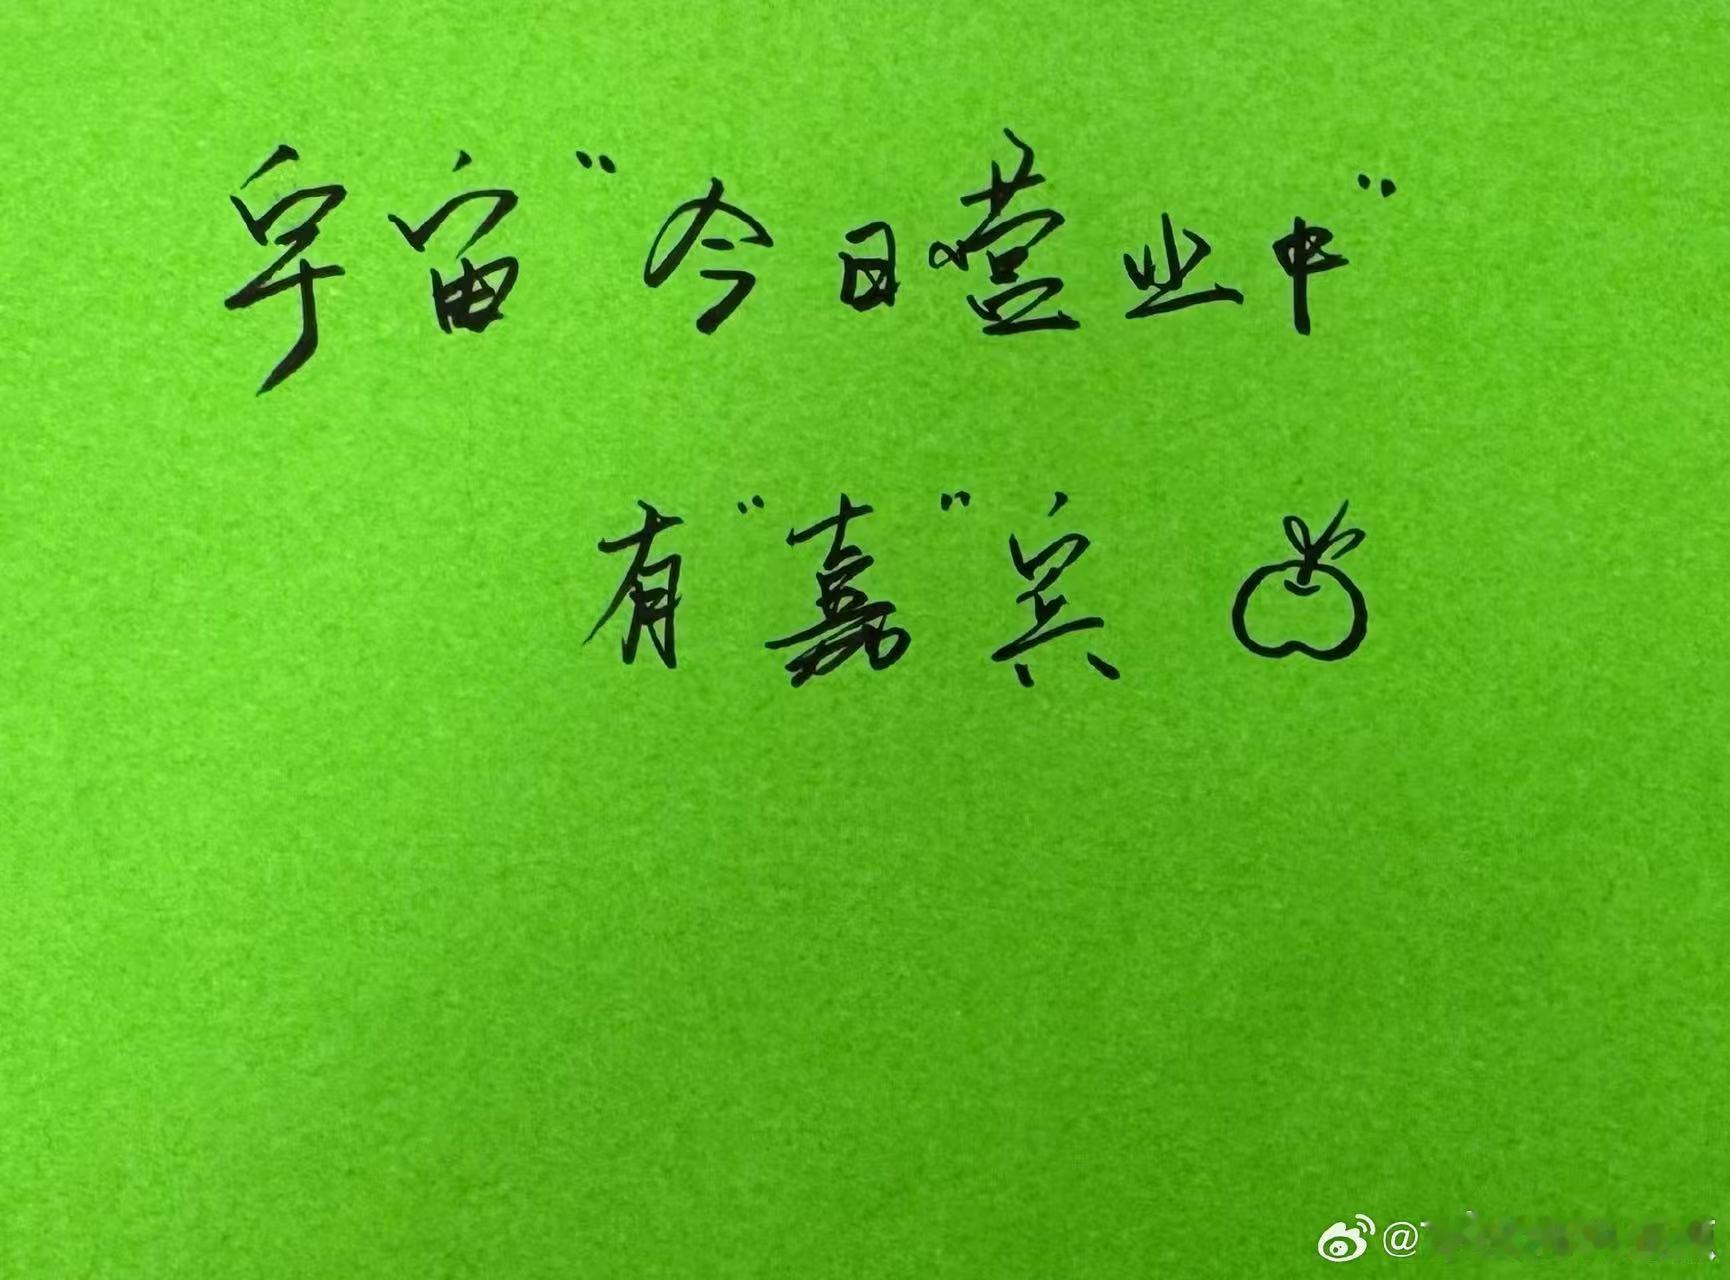 宇宙“今日营业中”
有“嘉”宾
@